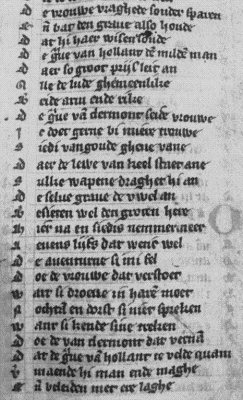 D e vrouwe vraghede sonder sparen
E n bat den grave also houde
D at hi haer wisen soude
D e g̃ue van hollant dē milden man
D aer so groot prijs leit an
A lle de lude ghemeenlike
B eide arm ende rike
D e g̃ue vā clermont seide vrouwe
I c doet gerne bi mire trouwe
S iedi van goude ghene vane
D aer de lewe van keel staet ane
S ulke wapene draghet hi an
D e selve grave de
B esceten wel den groten here
H ier na en siedis nemmermeer
L evens lijfs dat wetic wel
D e aventurne si mi fel
D oe de vrouwe dat verstoet
W art si droeve in harē moet
N ochtā en dorst si niet spreken
W ant si kende sine treken
D oe de van clermont dat vernā
D at de g̃ue vā hollant te velde quam
V maende hi man ende maghe
E n̄ beleiden niet